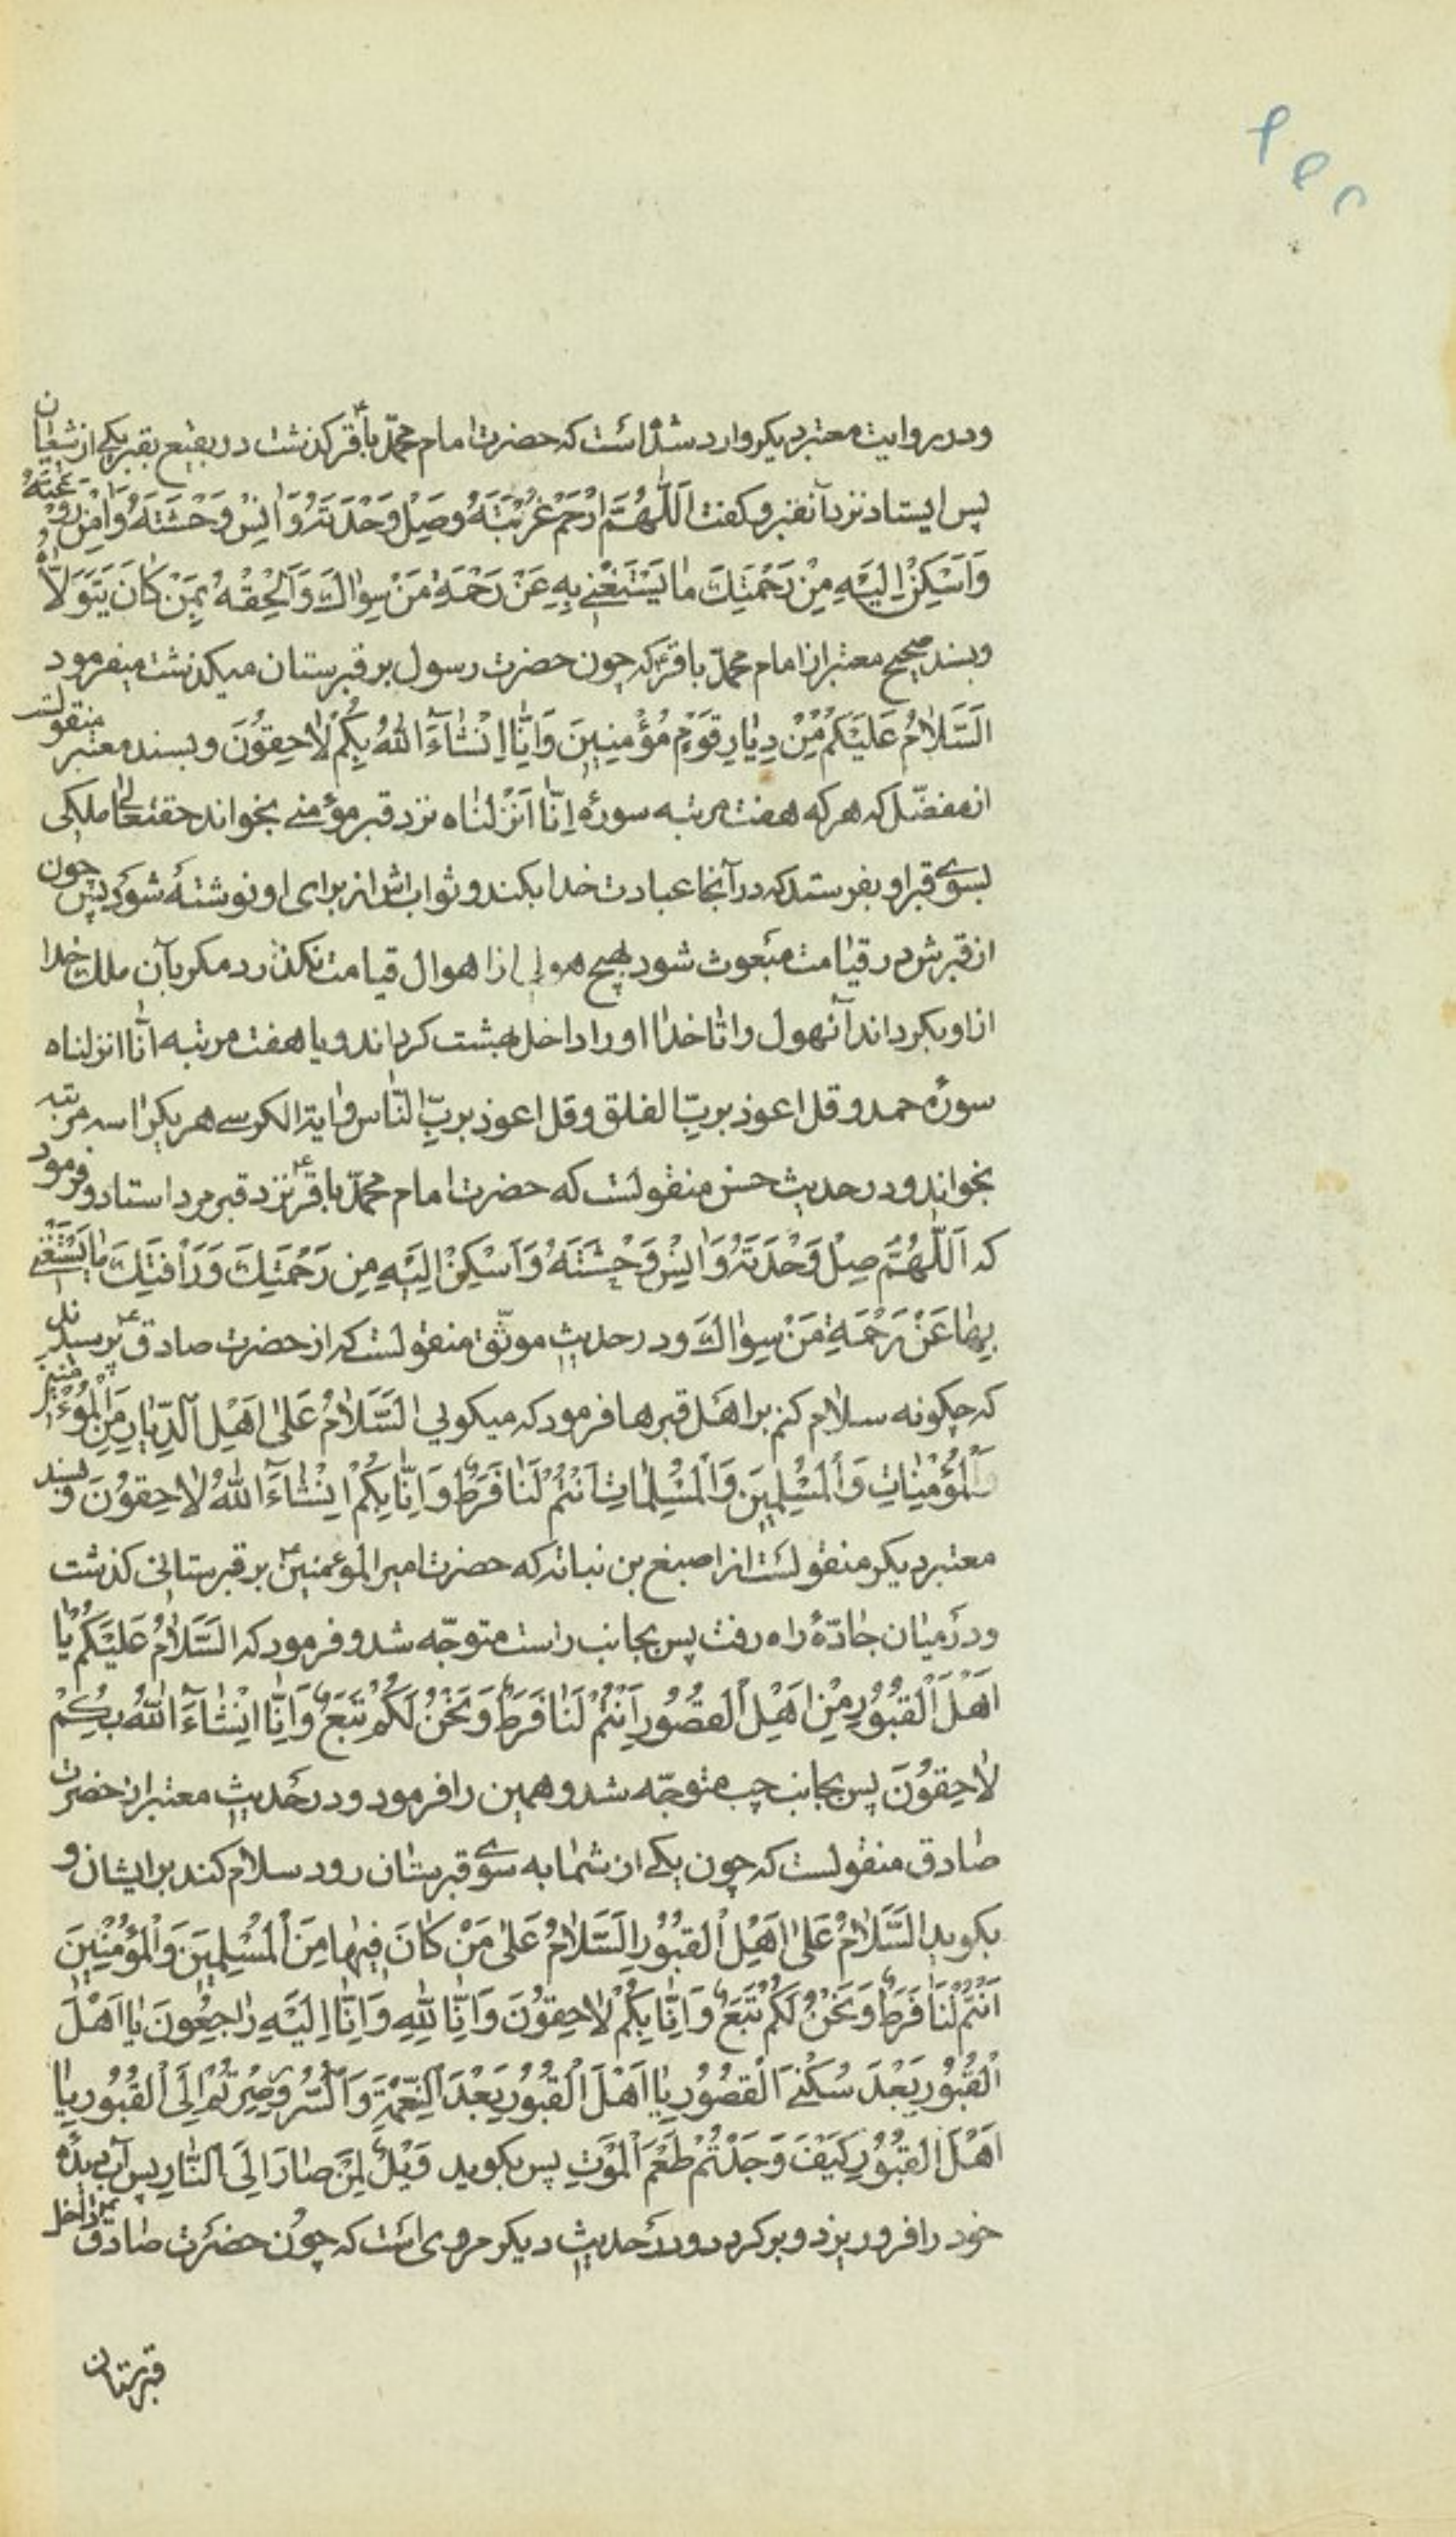 ودر روایت معتبر دیکر وارد شده است که حضرت امام محمّد باقر ع کذشت در بقیع بقبر یکی از شیعیان
پس ایستاد نزد آنقبر و کفت اَللّٰهُمَّ ارْحَمْ غُرْبَتَهُ وصِلْ وَحْدَتَهُ وَانِسْ وَحْشَتَهُ وَامِنْ رَوْعَتَهُ
وَاَسْكِنْ اِلَيْهِ مِنْ رَحْمَتِكَ مٰا يَسْتَغْنے بِهِ عَنْ رَحْمَةِ مَنْ سِوٰاكَ وَاَلْحِقْهُ بِمَنْ كٰانَ يَتَوَلاّٰهُ
وبسند صحیح معتبر از امام محمّد باقر ع که چون حضرت رسول بر قبرستان میکذشت میفرمود
اَلسَّلاٰمُ عَلَيْكُمْ مِنْ دِيٰارِ قَوْمٍ مُؤْمِنِينَ وَاِنّٰا اِنْشٰآءَ اللّٰهُ بِكُمْ لاٰحِقُونَ وبسند معتبر منقولست
از مفضّل که هر که هفت مرتبه سورهٔ اِنّٰا اَنْزَلْنٰاه نزد قبر مؤمنے بخواند حقتعالیٰ ملکی
بسوی قبر او بفرستد که در آنجا عبادت خدا بکند و ثواب اش از برای او نوشتهٔ شود پس چون
از قبرش در قیامت مبعوث شود بهیچ هولی از اهوال قیامت نکذرد مکر بآن ملك خدا
از او بکرداند آنهول را تا خدا او را داخل بهشت کرداند و یا هفت مرتبه انّا انزلناه
سورهٔ حمد و قل اعوذ بربّ الفلق و قل اعوذ بربِّ النّاس و ایة الکرسے هر یک را سه مرتبه
بخواند و در حدیث حسن منقولست که حضرت امام محمّد باقر ع نزد قبر مرد استاد و فرمود
که اَللّٰهُمَّ صِلْ وَحْدَتَهُ وَانِسْ وَحْشَتَهُ وَاَسْكِنْ اِلَيْهِ مِن رَحْمَتِكَ وَرَاْفَتِكَ مٰا يَسْتَغْنے
بِهٰا عَنْ رَحْمَةِ مَنْ سِوٰاكَ ودر حدیث موثّق منقولست که از حضرت صادق ع پرسیدند
که چکونه سلام کنم بر اهل قبرها فرمود که میکویی اَلسَّلاٰمُ عَلیٰ اَهْلِ الدِّيٰارِ مِنَ الْمُؤْمِنِينَ
وَالْمُؤْمِنٰاتِ وَالْمُسْلِمِينَ وَالْمُسْلِمٰاتِ اَنْتُمْ لَنٰا فَرَطٌ وَاِنّٰا بِكُمْ اِنْشٰآءَ اللّٰهُ لاٰحِقُونَ وبسند
معتبر دیکر منقولست از اصبغ بن نباته که حضرت امیر المؤمنین ع بر قبرستانی کذشت
ودر میٰان جٰادّهٔ راه رفت پس بجانب راست متوجّه شد و فرمود که اَلسَّلاٰمُ عَلَيْكُمْ يٰا
اَهْلَ الْقُبُورِ مِنْ اَهْلِ الْقُصُورِ اَنْتُمْ لَنٰا فَرَطٌ وَنَحْنُ لَكُمْ تَبَعٌ وَاِنّٰا اِنْشٰآءَ اللّٰهُ بِكُمْ
لاٰحِقُونَ پس بجانب چپ متوجّه شد و همین را فرمود ودر حدیث معتبر از حضرت
صٰادق منقولست که چون یکے از شمٰا به سوی قبرستٰان رود سلام کند بر ایشان و
بکوید اَلسَّلاٰمُ عَلیٰ اَهْلِ الْقُبُورِ اَلسَّلاٰمُ عَلیٰ مَنْ كٰانَ فِيهٰا مِنَ الْمُسْلِمِينَ وَالْمُؤْمِنِينَ
اَنْتُمْ لَنٰا فَرَطٌ وَنَحْنُ لَكُمْ تَبَعٌ وَاِنّٰا بِكُمْ لاٰحِقُونَ وَاِنّٰا لِلّٰهِ وَاِنّٰا اِلَيْهِ رٰاجِعُونَ يٰا اَهْلَ
الْقُبُورِ بَعْدَ سُكْنےَ الْقُصُورِ يٰا اَهْلَ الْقُبُورِ بَعْدَ النِّعْمَةِ وَالسُّرُورِ صِرْتُمْ اِلَی الْقُبُورِ يٰا
اَهْلَ الْقُبُورِ كَيْفَ وَجَدْتُمْ طَعْمَ الْمَوْتِ پس بکوید وَيْلٌ لِمَنْ صٰارَ اِلَی النّٰارِ پس آب دیده
خود را فرو ریزد و برکردد ودر حدیث دیکر مروی است که چون حضرت صٰادق ع داخل
قبرستان